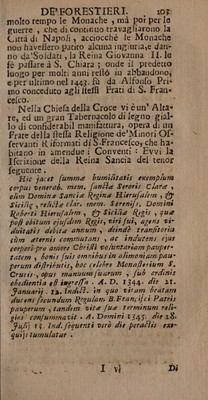 DE'FORESTIERI. 203
molto tempo le Monache, mà poi per le
guerre, che di continuo travagliarono la
Città di Napoli, acciocchè le Monache
non havessero patito alcuna ingiuria, e dan-
no da' Soldati, la Reina Giovanna II. le
fè passare à S. Chiara; onde il predetto
luogo per molti anni restò in abbandono,
e per ultimo nel 1443. fù da Alfonso Pri-
mo conceduto agli stessi Frati di S. Fran-
cesco.
Nella Chiesa della Croce vi è un' Alta-
re, ed un gran Tabernacolo di legno gial-
lo di considerabil manifattura, opera di un
Frate della stessa Religione de' Minori Os-
servanti Riformati di S. Francesco, che ha-
bitano in amendue i Conventi: Evvi la
Iscrizione della Reina Sancia del tenor
seguente.
Hic jacet summæ humilitatis exemplum
corpus venerab. mem. sanctæ Sororis Claræ
olim Dominæ Sanciæ Reginæ Hierusalem, &
Siciliæ, relictæ clar. mem. Serenis. Domini
Roberti Hierusalem, & Siciliæ Regis, quæ
post obitum ejusdem Regis, viri sui, agens vi-
duitatis debitæ annum, deindè transitoria
cum æternis commutans, ac inducens ejus
corpori pro amore Christi voluntariam pauper-
tatem, bonis suis omnibus in alimoniam pau-
perum distributis, hoc celebre Monasterium S.
Crucis, opus manuum suarum, sub ordinis
obedientia est ingressa. A. D. 1344. die 21.
Januarii 12. Indict. in quo vitam beatam
ducens secundum Regulam B. Francisci Patris
pauperum, tandem vitæ suæ terminum reli-
giosè consummavit. A. Domini 1345. die 28.
Julii 13. Ind. sequenti verò die peractis exe-
quijs tumulatur.
I vj Di